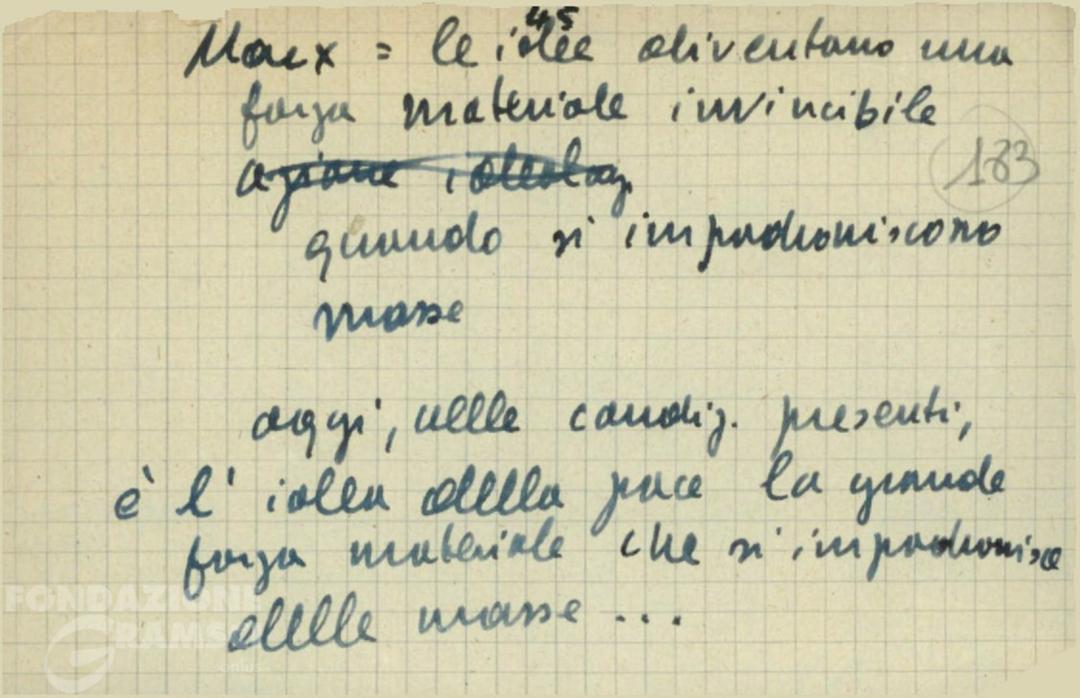 45
Marx = le idee diventano una
forza materiale invincibile
183
azione ideolog.
quando si impadroniscono
masse
oggi, nelle condiz. presenti,
è l'idea della pace la grande
forza materiale che si impadronisce
delle masse ...
FONDAZIONE
GRAMSCI
onlus